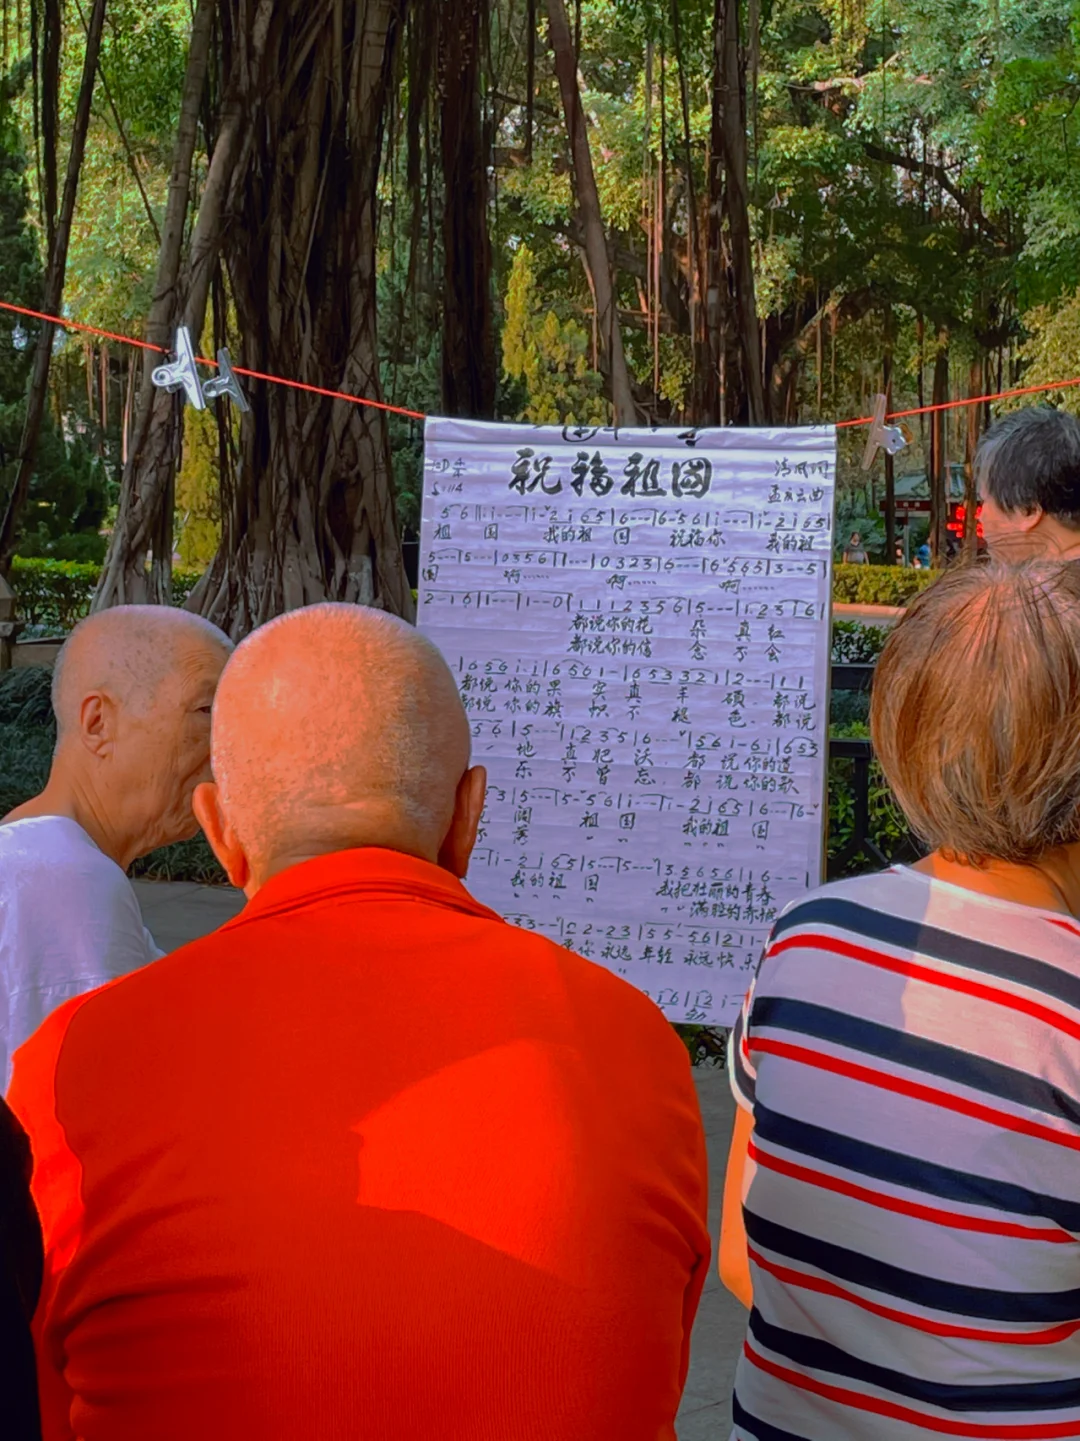 祝福祖國
清风词
孟庆云曲
5 6 | i - - - | i - 2 i 6 5 | 6 - - - | 6 - 5 6 | i - - - | i - 2 i 6 5 |
祖 国 我的祖 国 祝福你 我的祖
5 - - - | 5 - - - | 0 3 5 6 | 1 - - - | 0 3 2 3 | 6 - - - | 6 5 6 3 | 3 - - 5 |
国 啊…… 啊…… 啊……
2 - 1 6 | 1 - - - | 1 - - 0 | 1 1 1 2 3 5 6 | 5 - - - | 1 . 2 3 1 6 |
都说你的花 朵 真 红
都说你的信 念 不 会
- | 6 5 6 i · i | 6 5 6 1 - | 6 5 3 3 2 1 | 2 - - - | 1 1
都说 你的果 实 真 丰 硕. 都说
都说 你的旗 帜 不 褪 色. 都说
5 6 | 5 - - - | 1 2 3 5 | 6 - - - | 5 6 i - 6 i | 6 5 3
地 真 肥 沃. 都 说你的道
乐 不 曾 忘. 都 说你的歌
3 | 5 - - - | 5 - 5 6 | i - - - | i - 2 i 6 5 | 6 - - - | 6 -
阔 祖 国 我的祖 国
不 落 " " " " " "
- - | i - 2 i 6 5 | 5 - - - | 5 - - - | 3 5 6 5 6 i | 6 - - - |
我的祖 国 我把壮丽的青春
" " " " " 满腔的赤诚
3 3 - - | 2 2 - 2 3 | 5 5 - 5 6 | 2 1 1 -
你 永远 年轻 永远快 乐
2 i 6 | i 2 i -